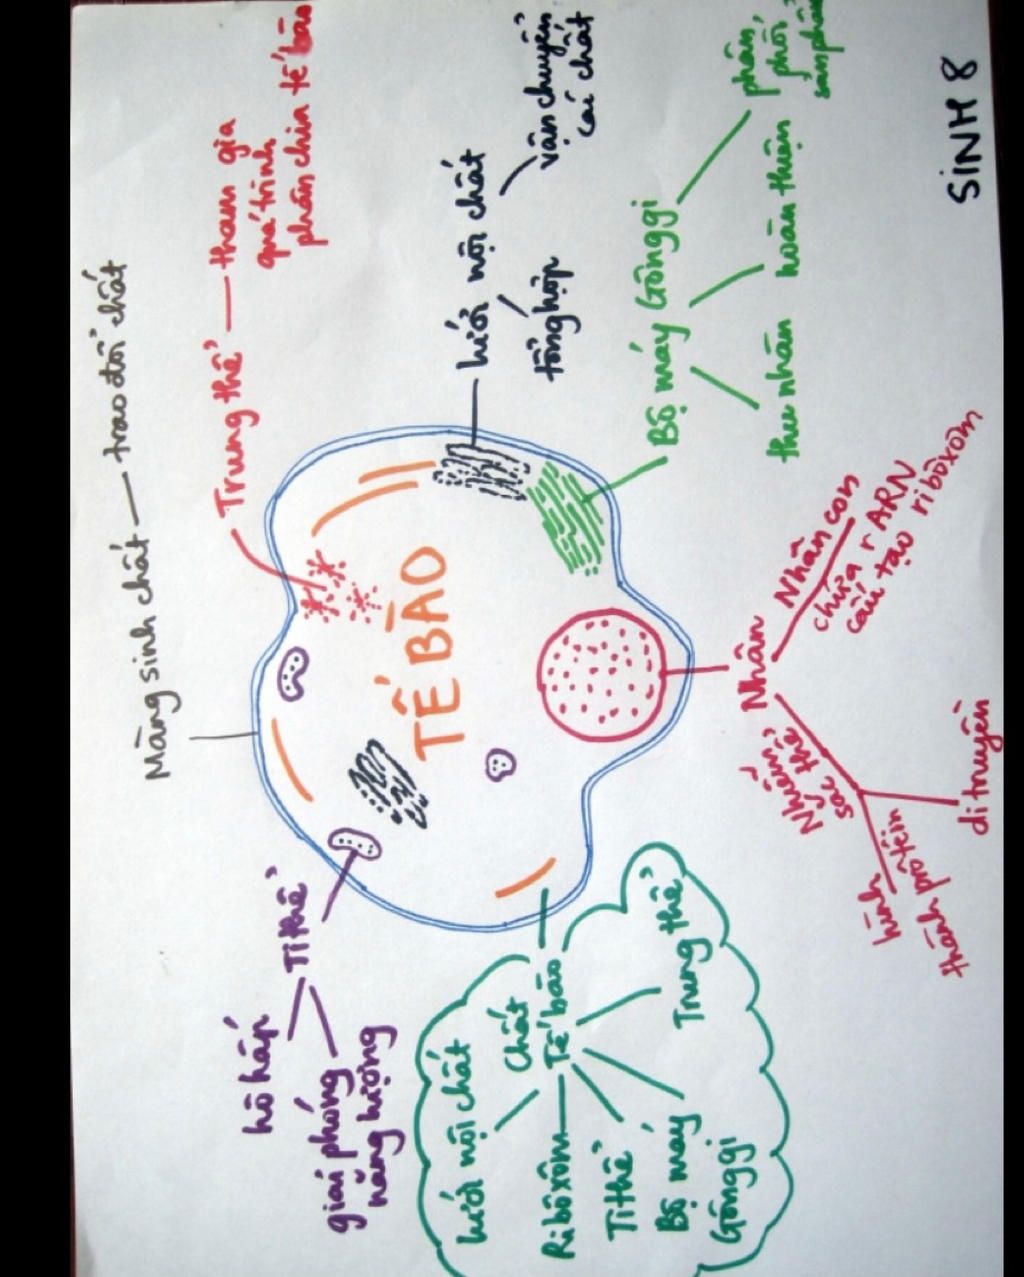 Màng sinh chất
trao đổi chất
Trung thể
tham gia
quá trình
phân chia tế bào
lưới nội chất
tổng hợp
vận chuyển
các chất
Bộ máy Gônggi
thu nhận
hoàn thiện
phân
phối
sản phẩm
SINH 8
TẾ BÀO
Ti thể
hô hấp
giải phóng
năng lượng
Chất
Tế bào
lưới nội chất
Ribôxôm
Ti thể
Bộ máy
Gônggi
Trung thể
Nhân
Nhân con
chứa rARN
cấu tạo ribôxôm
Nhiễm
sắc thể
hình
thành prôtêin
di truyền